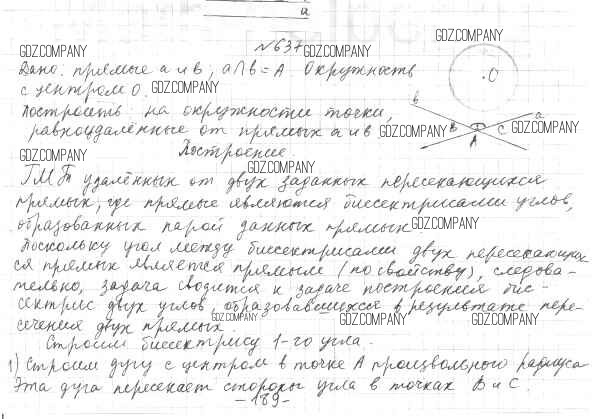 a
№637 GDZ.COMPANY
GDZ.COMPANY
GDZ.COMPANY
Дано: прямые a и b; a∩b=A Окружность
с центром O. GDZ.COMPANY
·O
Построить: на окружности точки,
равноудалённые от прямых a и b GDZ.COMPANY
b a
B C GDZ.COMPANY
A
GDZ.COMPANY
Построение:
GDZ.COMPANY
ГМТ удалённых от двух заданных пересекающихся
прямых, где прямые являются биссектрисами углов,
образованных парой данных прямых. GDZ.COMPANY
Поскольку угол между биссектрисами двух пересекающих-
ся прямых является прямым (по свойству), следова-
тельно, задача сводится к задаче построения бис-
сектрис двух углов, образовавшихся в результате пере-
сечения двух прямых.
GDZ.COMPANY GDZ.COMPANY GDZ.COMPANY
Строим биссектрису 1-го угла.
GDZ.COMPANY
1) Строим дугу с центром в точке A произвольного радиуса
Эта дуга пересекает стороны угла в точках B и C.
-189-